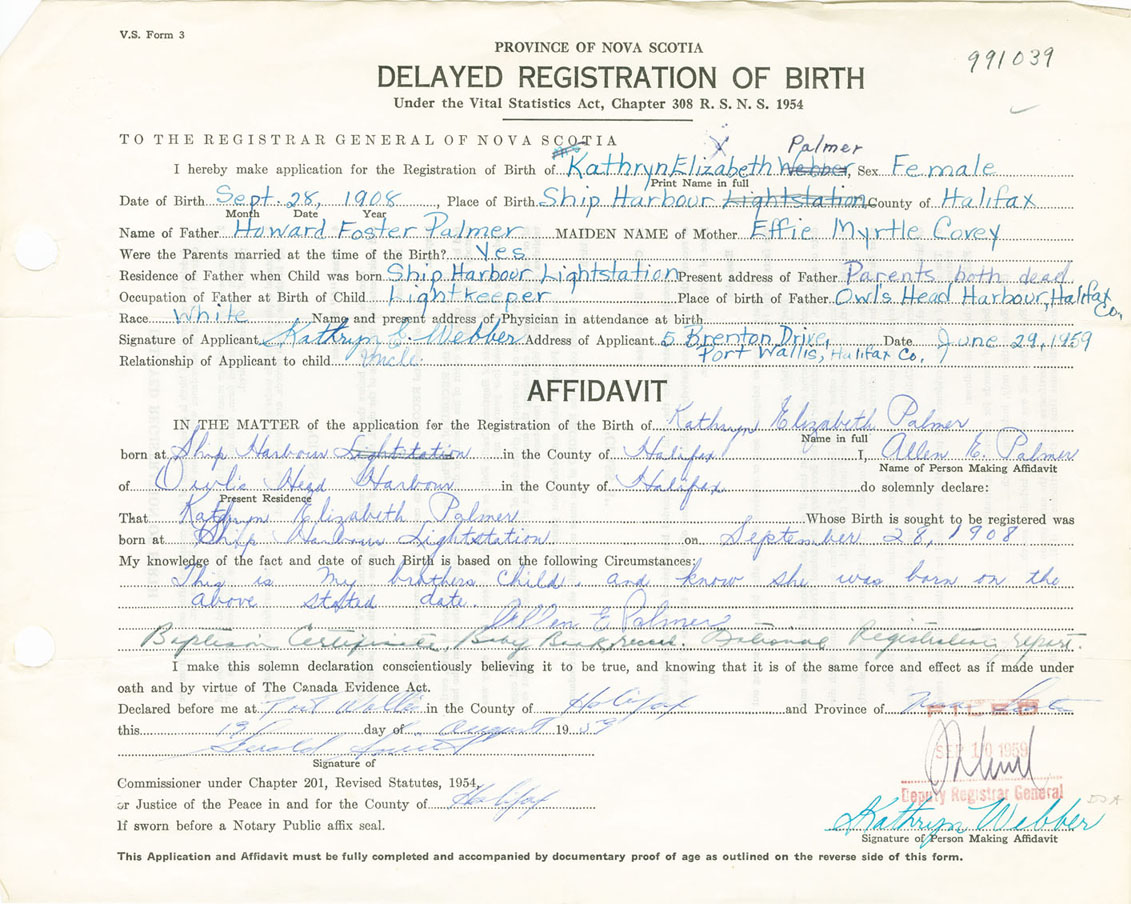 V.S. Form 3
PROVINCE OF NOVA SCOTIA
991039
DELAYED REGISTRATION OF BIRTH
Under the Vital Statistics Act, Chapter 308 R. S. N. S. 1954
TO THE REGISTRAR GENERAL OF NOVA SCOTIA
Palmer
I hereby make application for the Registration of Birth of Kathryn Elizabeth Webber, Sex Female
Print Name in full
Date of Birth Sept. 28, 1908, Place of Birth Ship Harbour Lightstation County of Halifax
Month Date Year
Name of Father Howard Foster Palmer MAIDEN NAME of Mother Effie Myrtle Covey
Were the Parents married at the time of the Birth? Yes
Residence of Father when Child was born Ship Harbour Lightstation Present address of Father Parents both dead
Occupation of Father at Birth of Child Lightkeeper Place of birth of Father Owl's Head Harbour, Halifax Co,
Race White Name and present address of Physician in attendance at birth
Signature of Applicant Kathryn E. Webber Address of Applicant 5 Brenton Drive, Date June 29, 1959
Port Wallis, Halifax Co.
Relationship of Applicant to child Uncle.
AFFIDAVIT
IN THE MATTER of the application for the Registration of the Birth of Kathryn Elizabeth Palmer
Name in full
born at Ship Harbour Lightstation in the County of Halifax I, Allen E. Palmer
Name of Person Making Affidavit
of Owl's Head Harbour in the County of Halifax do solemnly declare:
Present Residence
That Kathryn Elizabeth Palmer Whose Birth is sought to be registered was
born at Ship Harbour Lightstation on September 28, 1908
My knowledge of the fact and date of such Birth is based on the following Circumstances:
This is my brothers child. and know she was born on the
above stated date.
Allen E Palmer
Baptism Certificate, Baby Book record. National Registration report.
I make this solemn declaration conscientiously believing it to be true, and knowing that it is of the same force and effect as if made under
oath and by virtue of The Canada Evidence Act.
Declared before me at Port Wallis in the County of Halifax and Province of Nova Scotia
FILED
this 19 day of August 1959
SEP 10 1959
Gerald
Signature of
Commissioner under Chapter 201, Revised Statutes, 1954,
Deputy Registrar General
or Justice of the Peace in and for the County of Halifax
Kathryn Webber
If sworn before a Notary Public affix seal.
Signature of Person Making Affidavit
This Application and Affidavit must be fully completed and accompanied by documentary proof of age as outlined on the reverse side of this form.